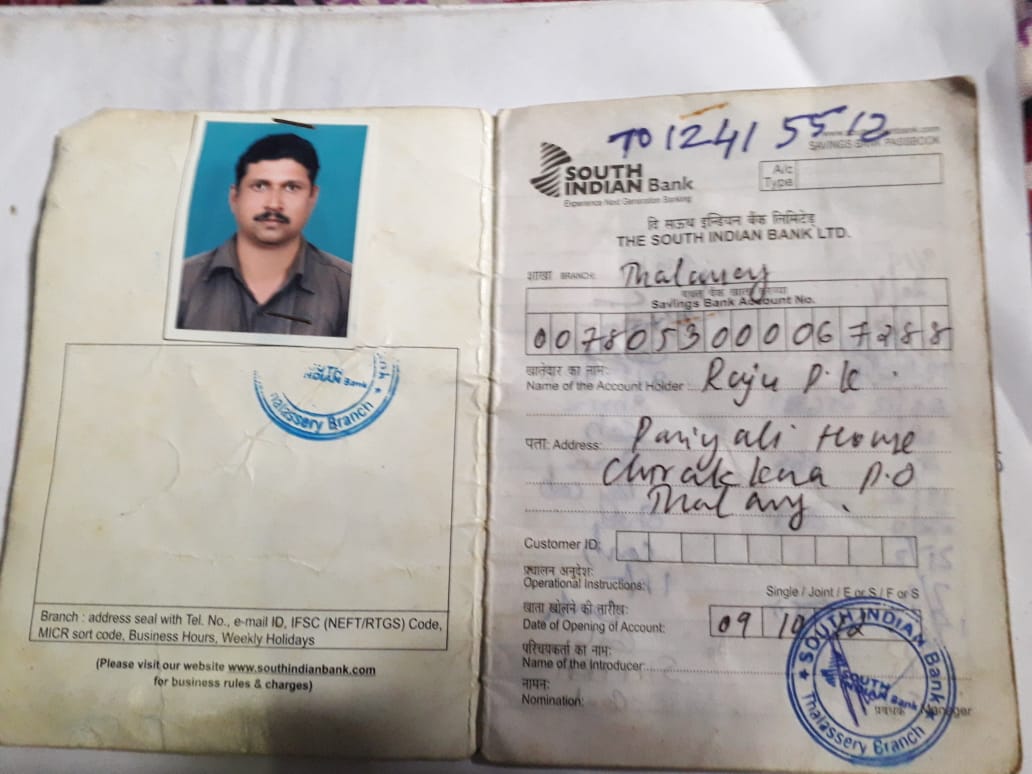 INDIAN Bank
Thalassery Branch
Branch : address seal with Tel. No., e-mail ID, IFSC (NEFT/RTGS) Code,
MICR sort code, Business Hours, Weekly Holidays
(Please visit our website www.southindianbank.com
for business rules & charges)
TO 1241 55 12
SAVINGS BANK PASSBOOK
SOUTH
INDIAN Bank
Experience Next Generation Banking
A/c
Type
दि साऊथ इन्डियन बैंक लिमिटेड़
THE SOUTH INDIAN BANK LTD.
शाखा BRANCH:
Savings Bank Account No.
0078053000067288
खातेदार का नाम:
Name of the Account Holder : Raju P.K.
पता: Address: Pariyali Home
P.O
Customer ID:
Operational Instructions:
Single / Joint / E or S / F or S
खाता खोलने की तारीख:
Date of Opening of Account: 09 10 12
परिचयकर्ता का नाम:
Name of the Introducer:
Nomination:
SOUTH INDIAN Bank
SOUTH
INDIAN Bank
Thalassery Branch
Manager